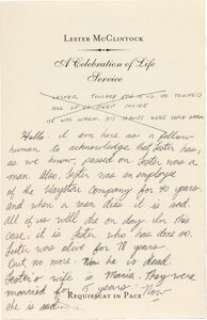 LESTER MCCLINTOCK
A Celebration of Life
Service
LESTER TOUCHED
ALL OF US DEEP INSIDE
IT WAS WHEN HIS HANDS WERE
Hello. I am here as a fellow
human to acknowledge that Lester has,
as we know, passed on. Lester was a
man. Also, Lester was an employee
of the Company for 40 years.
and when a man dies it is sad.
All of us will die one day. In this
case, it is Lester who has done so.
Lester was alive for 78 years.
But no more. Now he is dead.
Lester's wife is Maria. They were
married for 15 years. Now
she is sad.
REQUIESCAT IN PACE